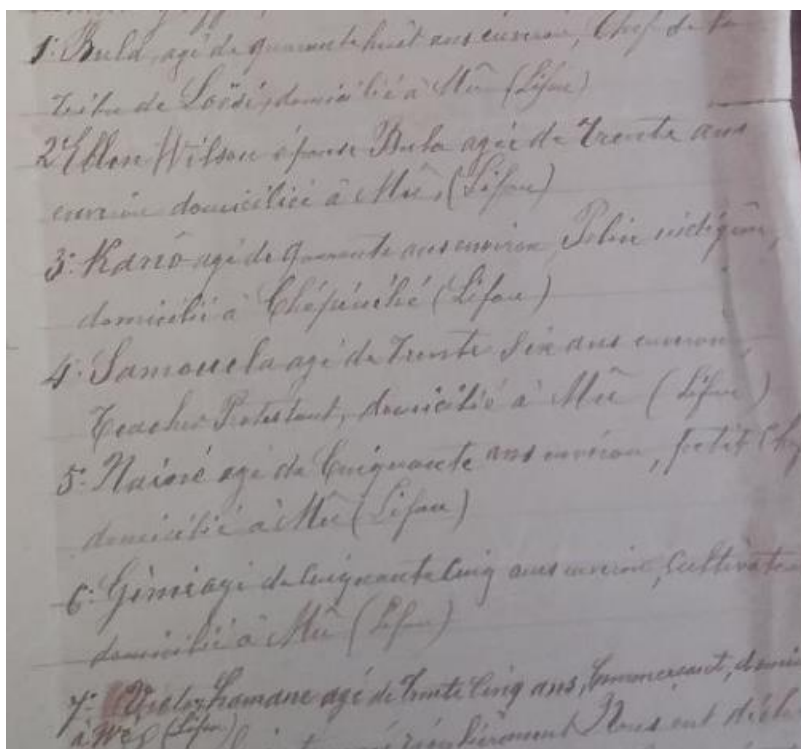 1º Bula, agé de quarante huit ans environ, Chef de la
tribu de Loëssi, domicilié à Mû (Lifou)
2º Ellen Wilson épouse Bula agée de trente ans
environ domiciliée à Mû, (Lifou)
3º Kano agé de quarante ans environ, Police indigène,
domicilié à Chépénéhé (Lifou)
4º Samouela agé de trente six ans environ,
Teacher Protestant, domicilié à Mû (Lifou)
5º Nainé agé de Cinquante ans environ, petit Chef
domicilié à Mû (Lifou)
6º Gimé agé de Cinquante Cinq ans environ, Cultivateur
domicilié à Mû (Lifou)
7º Victor hamane agé de trente Cinq ans, Commercant, domici
à We, (Lifou) Nous ont décla